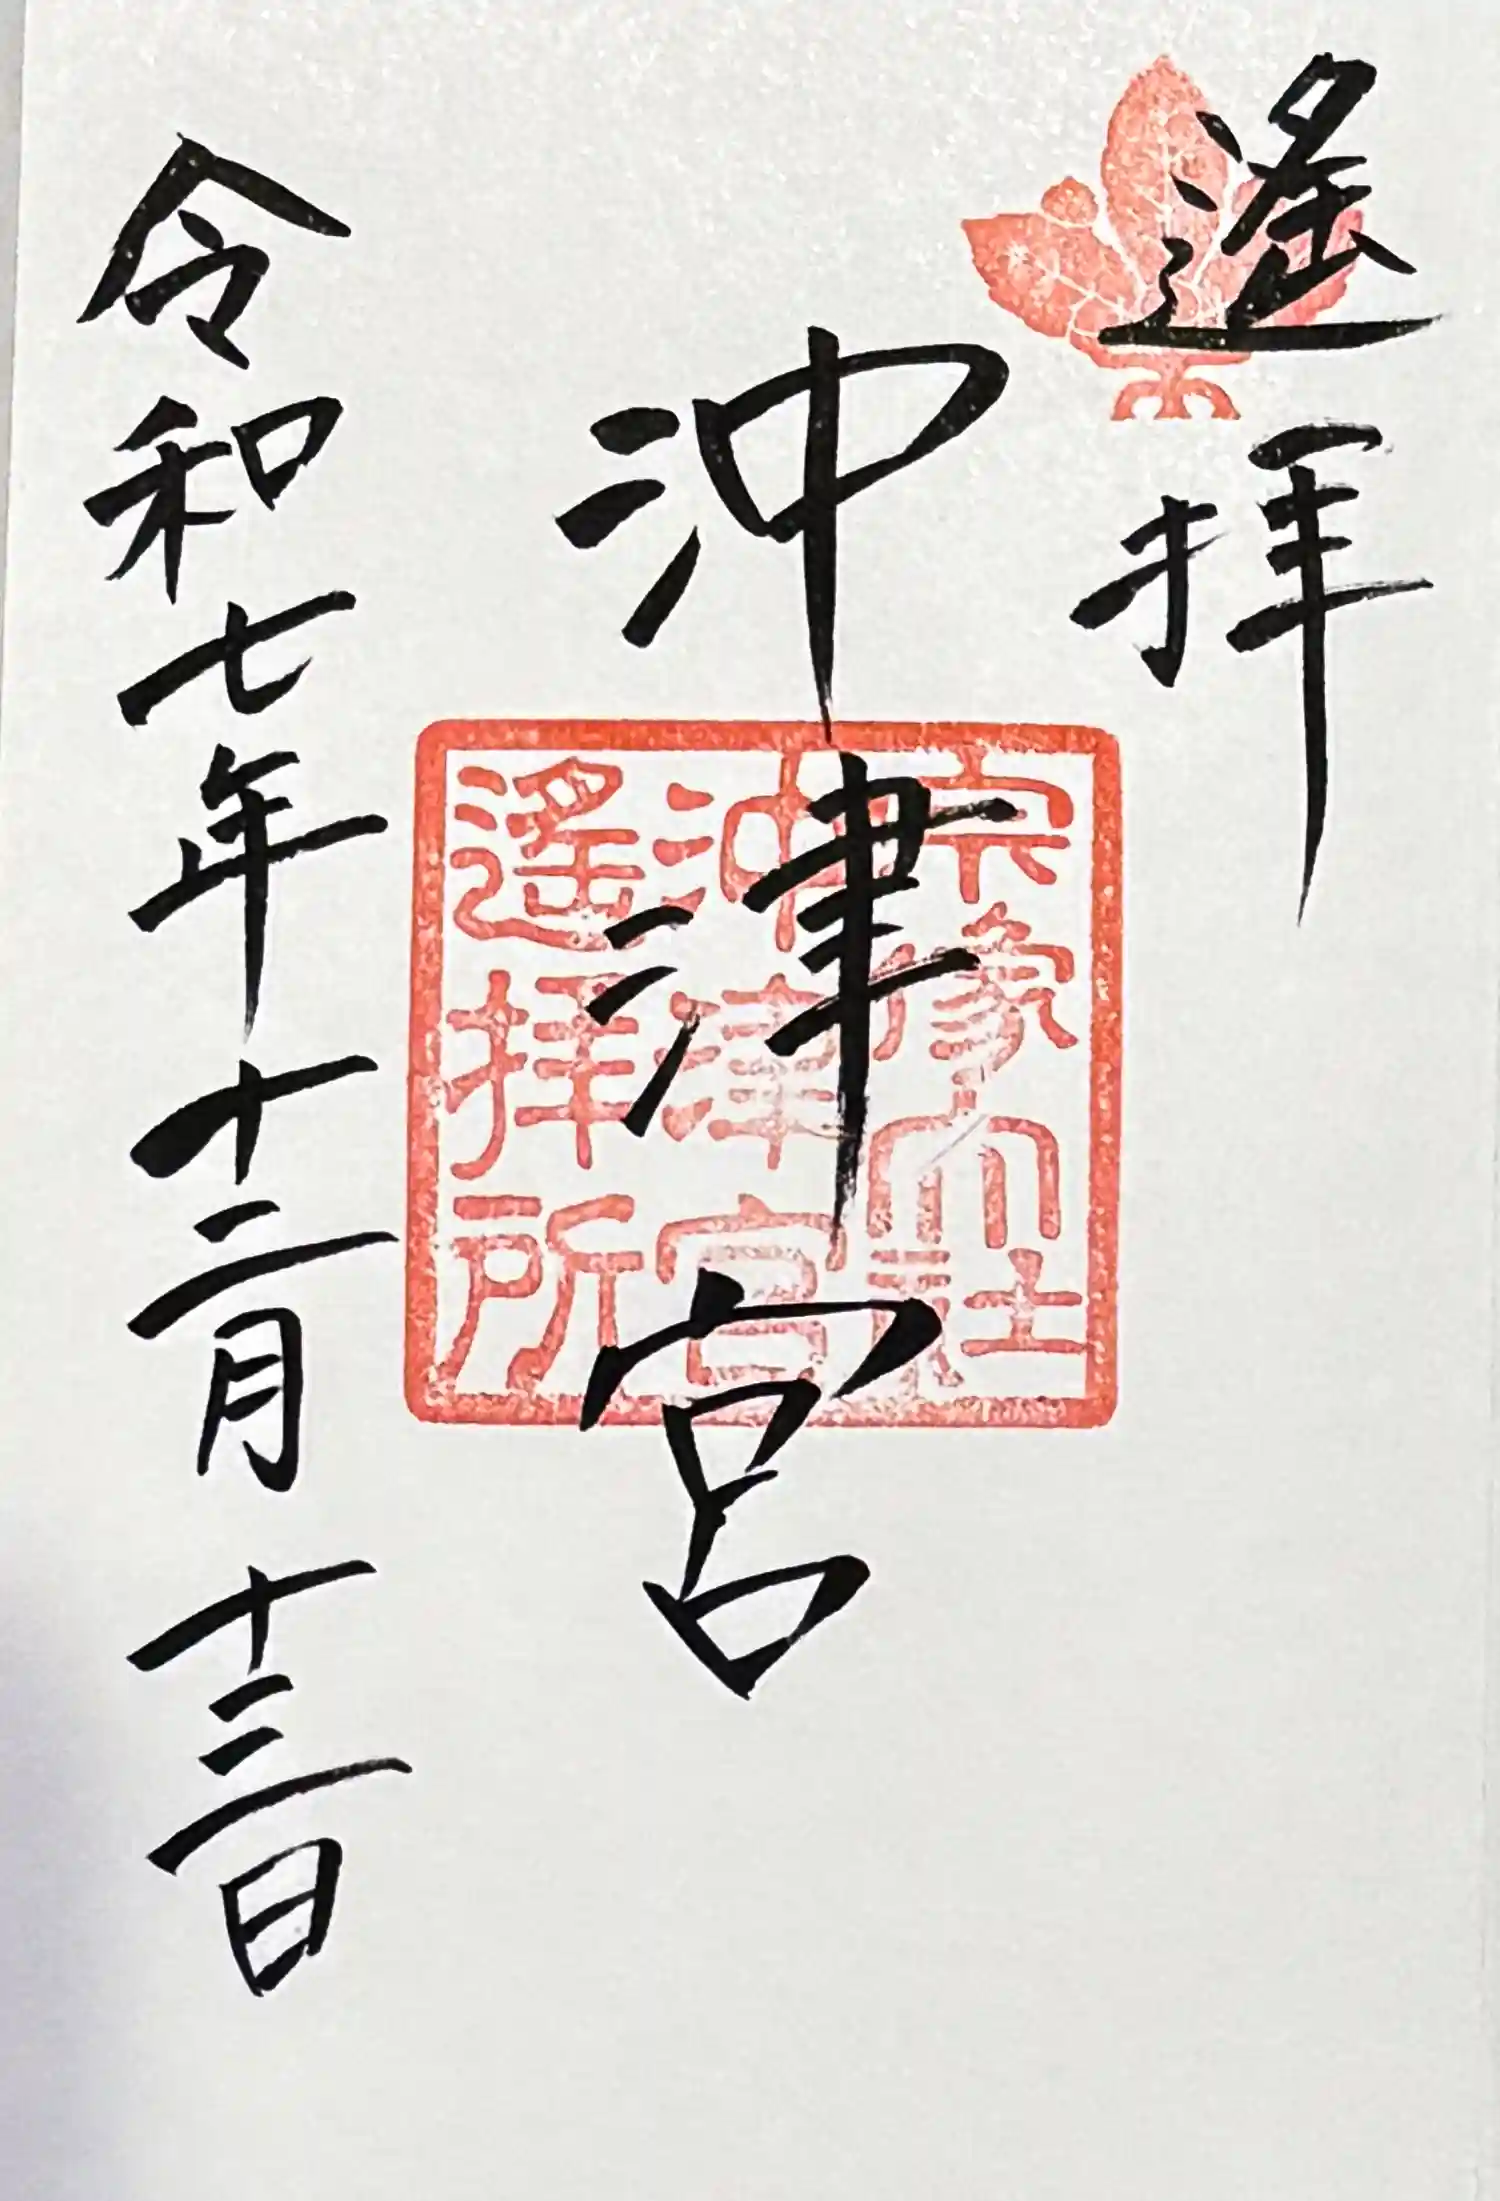 遙拝
沖津宮
令和七年十二月十三日
宗像大社
沖津宮
遙拝所